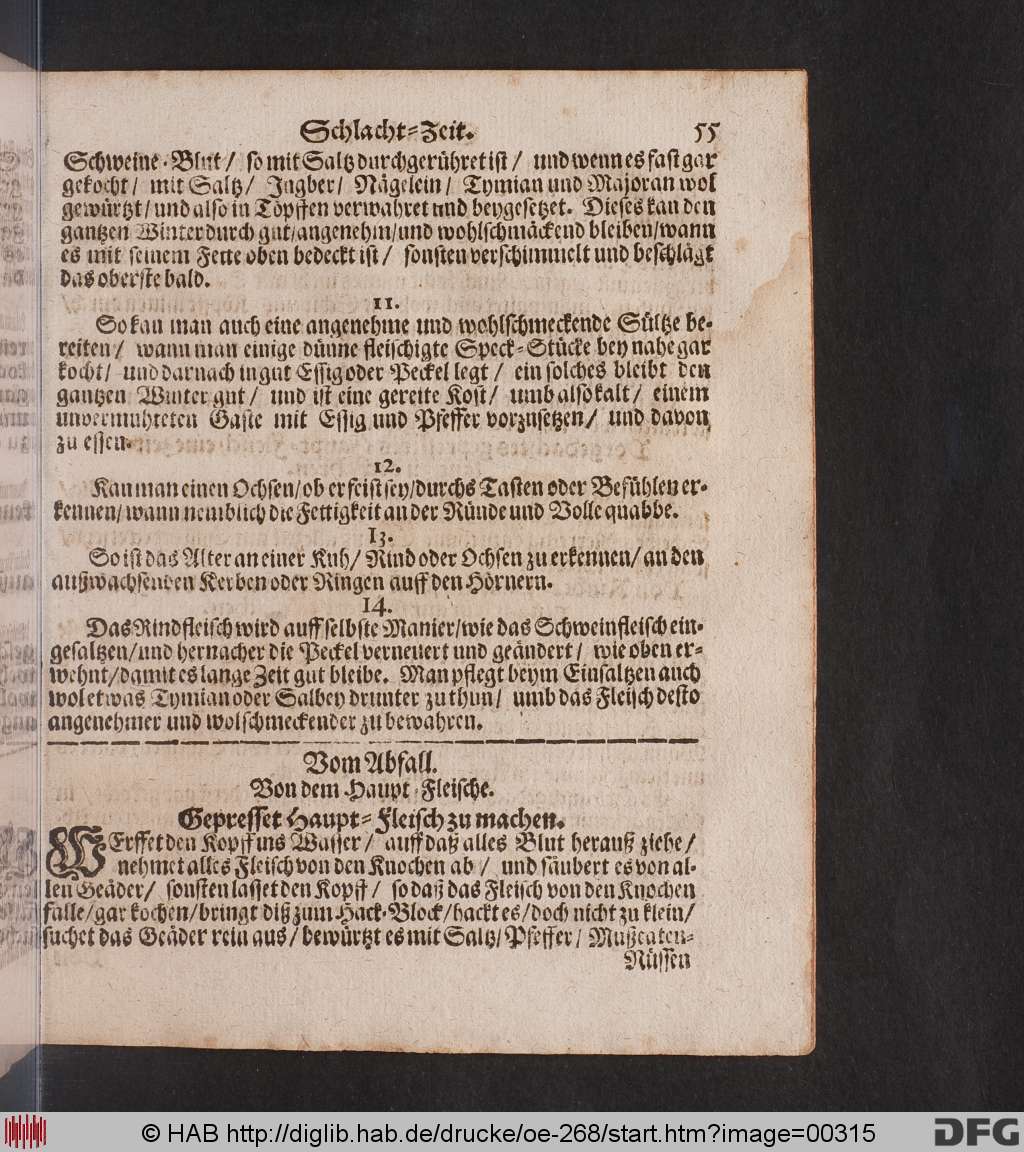 Schlacht-Zeit. 55
Schweine-Blut/ so mit Saltz durchgerühret ist/ und wenn es fast gar
gekocht/ mit Saltz/ Ingber/ Nägelein/ Tymian und Majoran wol
gewürtzt/ und also in Töpffen verwahret und beygesetzet. Dieses kan den
gantzen Winter durch gut/ angenehm/ und wohlschmäckend bleiben/ wann
es mit seinem Fette oben bedeckt ist/ sonsten verschimmelt und beschlägt
das oberste bald.
11.
So kan man auch eine angenehme und wohlschmeckende Sültze be-
reiten/ wann man einige dünne fleischigte Speck-Stücke bey nahe gar
kocht/ und darnach in gut Essig oder Peckel legt/ ein solches bleibt den
gantzen Winter gut/ und ist eine gereite Kost/ umb also kalt/ einem
unvermuhteten Gaste mit Essig und Pfeffer vorzusetzen/ und davon
zu essen.
12.
Kan man einen Ochsen/ ob er feist sey/ durchs Tasten oder Befühlen er-
kennen/ wann nemblich die Fettigkeit an der Ründe und Volle quabbe.
13.
So ist das Alter an einer Kuh/ Rind oder Ochsen zu erkennen/ an den
außwachsenden Kerben oder Ringen auff den Hörnern.
14.
Das Rindfleisch wird auff selbste Manier/ wie das Schweinfleisch ein-
gesaltzen/ und hernacher die Peckel verneuert und geändert/ wie oben er-
wehnt/ damit es lange Zeit gut bleibe. Man pflegt beym Einsaltzen auch
wol etwas Tymian oder Salbey drunter zu thun/ umb das Fleisch desto
angenehmer und wolschmeckender zu bewahren.
Vom Abfall.
Von dem Haupt-Fleische.
Gepresset Haupt-Fleisch zu machen.
WErffet den Kopff ins Wasser/ auff daß alles Blut herauß ziehe/
nehmet alles Fleisch von den Knochen ab/ und säubert es von al-
len Geäder/ sonsten lasset den Kopff/ so daß das Fleisch von den Knochen
falle/ gar kochen/ bringt diß zum Hack-Block/ hackt es/ doch nicht zu klein/
suchet das Geäder rein aus/ bewürtzt es mit Saltz/ Pfeffer/ Mußcaten-
Nüssen
© HAB http://diglib.hab.de/drucke/oe-268/start.htm?image=00315
DFG